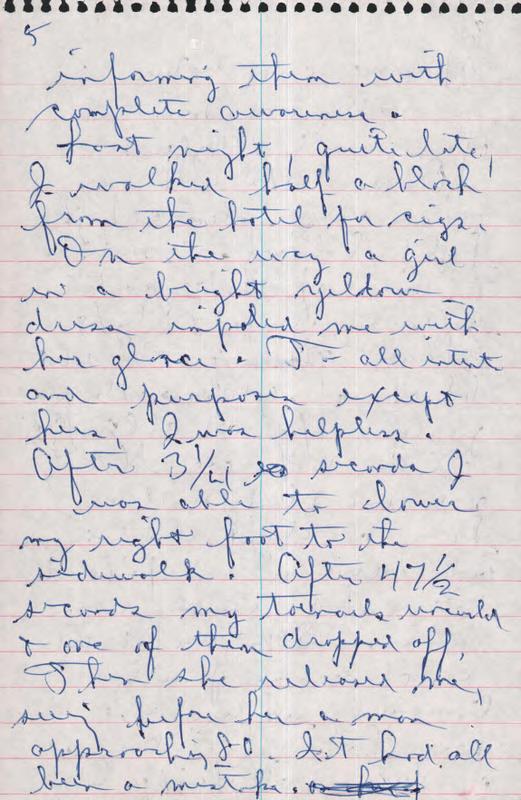 5
informing them with
complete awareness.
Last night, quite late,
I walked half a block
from the hotel for cigs.
On the way a girl
in a bright yellow
dress impaled me with
her glance. To all intent
and purposes except
hers, I was helpless.
After 3 1/4 seconds I
was able to lower
my right foot to the
sidewalk. After 47 1/2
seconds my toenails
& one of them dropped off.
Then she released me,
seeing before her a man
approaching 80. It had all
been a mistake.